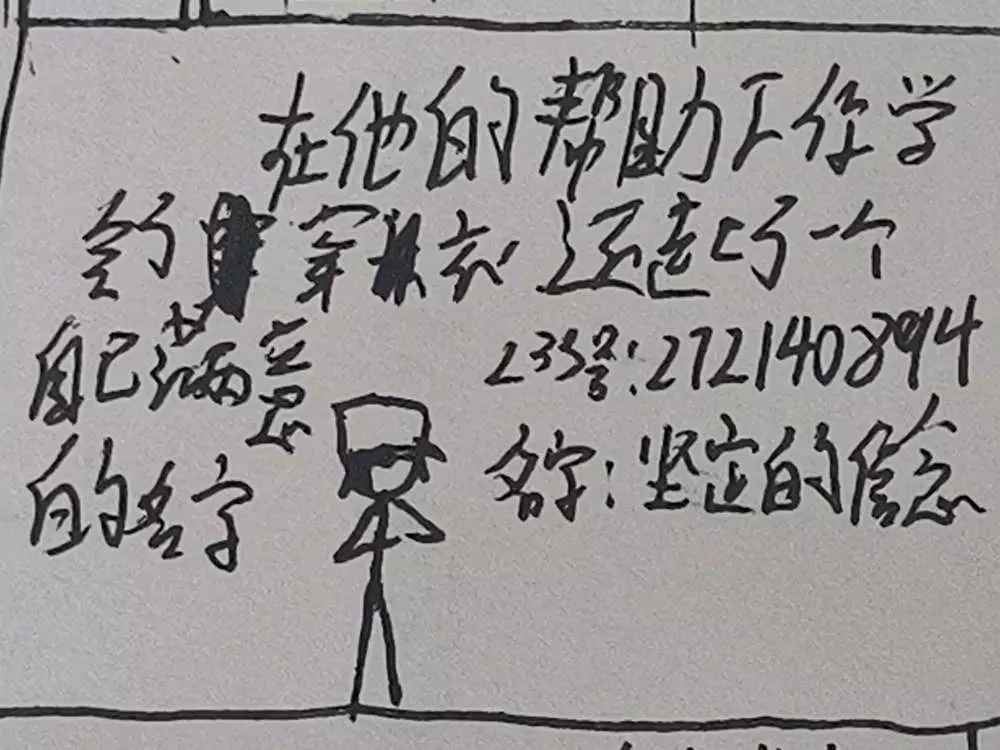 在他的帮助下你学
会了穿衣 还起上了一个
自己满意
的名字
233号:2721408914
名字:坚定的信念